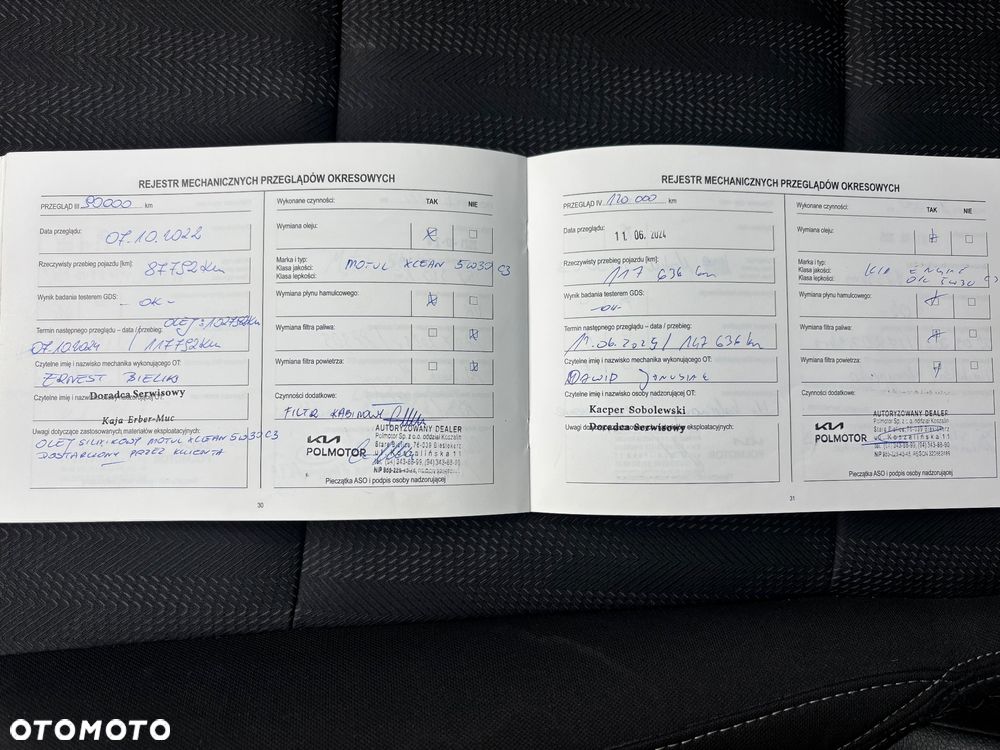 REJESTR MECHANICZNYCH PRZEGLĄDÓW OKRESOWYCH
PRZEGLĄD III 90000 km
Data przeglądu:
07.10.2022
Rzeczywisty przebieg pojazdu [km]:
87792 km
Wynik badania testerem GDS:
- OK -
OLEJ: 102792km
Termin następnego przeglądu – data / przebieg:
07.10.2024 / 117792km
Czytelne imię i nazwisko mechanika wykonującego OT:
ERNEST BIELIKI
Doradca Serwisowy
Czytelne imię i nazwisko osoby nadzorującej OT:
Kaja Erber-Muc
Uwagi dotyczące zastosowanych materiałów eksploatacyjnych:
OLEJ SILNIKOWY MOTUL XCLEAN 5W30 C3
DOSTARCZONY PRZEZ KLIENTA
Wykonane czynności:
TAK NIE
Wymiana oleju:
Marka i typ:
Klasa jakości:
Klasa lepkości:
MOTUL XCLEAN 5W30 C3
Wymiana płynu hamulcowego:
Wymiana filtra paliwa:
Wymiana filtra powietrza:
Czynności dodatkowe:
FILTR KABINOWY
KIA
POLMOTOR
AUTORYZOWANY DEALER
Polmotor Sp. z o.o. oddział Koszalin
Stare Bielice, 76-039 Biesiekierz
ul. Koszalińska 11
Pieczątka ASO i podpis osoby nadzorującej
30
REJESTR MECHANICZNYCH PRZEGLĄDÓW OKRESOWYCH
PRZEGLĄD IV 120 000 km
Data przeglądu:
11. 06. 2024
Rzeczywisty przebieg pojazdu [km]:
117 636 km
Wynik badania testerem GDS:
-OK-
Termin następnego przeglądu – data / przebieg:
11.06.2025 / 147 636 km
Czytelne imię i nazwisko mechanika wykonującego OT:
DAWID
Czytelne imię i nazwisko osoby nadzorującej OT:
Kacper Sobolewski
Doradca Serwisowy
Wykonane czynności:
TAK NIE
Wymiana oleju:
Marka i typ:
Klasa jakości:
Klasa lepkości:
KIA ENGINE
OIL 5W30 C3
Wymiana płynu hamulcowego:
Wymiana filtra paliwa:
Wymiana filtra powietrza:
Czynności dodatkowe:
KIA
POLMOTOR
AUTORYZOWANY DEALER
Polmotor Sp. z o.o. oddział Koszalin
Stare Bielice, 76-039 Biesiekierz
ul. Koszalińska 11
Pieczątka ASO i podpis osoby nadzorującej
31
OTOMOTO